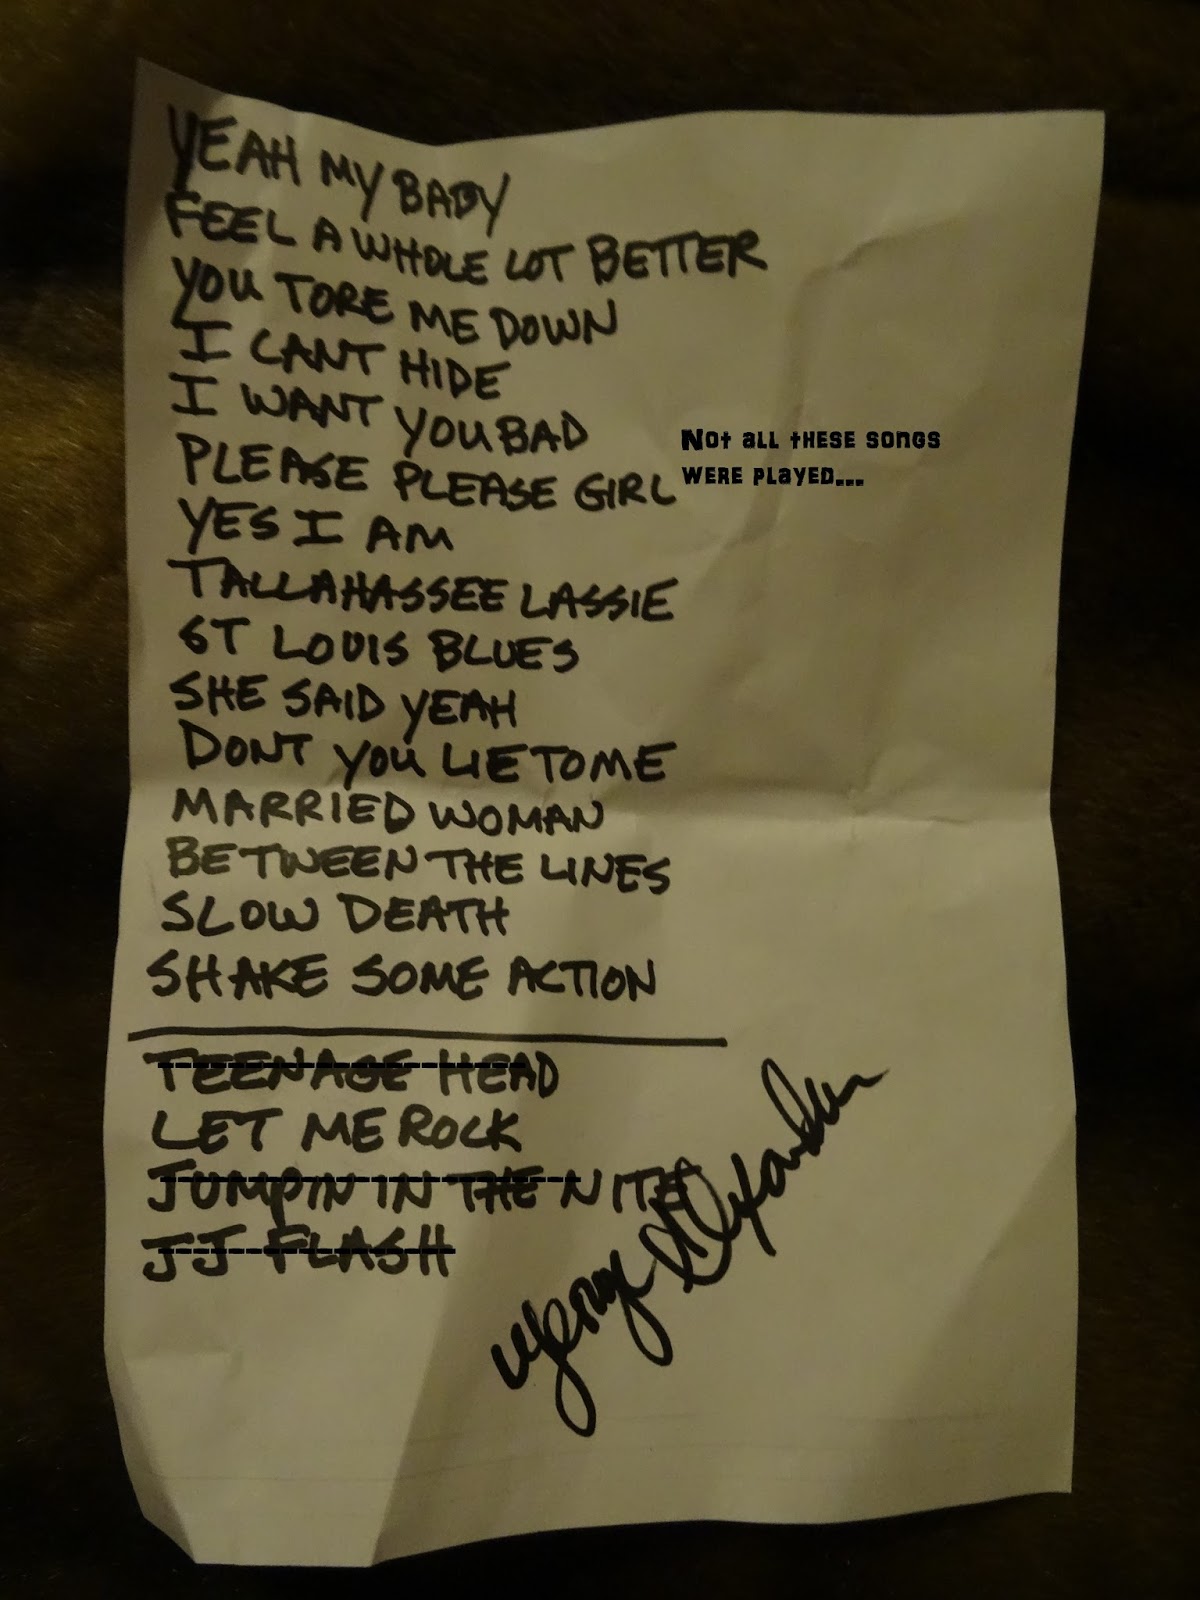 YEAH MY BABY
FEEL A WHOLE LOT BETTER
YOU TORE ME DOWN
I CANT HIDE
I WANT YOU BAD
PLEASE PLEASE GIRL
Not all these songs
were played...
YES I AM
TALLAHASSEE LASSIE
ST LOUIS BLUES
SHE SAID YEAH
DONT YOU LIE TO ME
MARRIED WOMAN
BETWEEN THE LINES
SLOW DEATH
SHAKE SOME ACTION
TEENAGE HEAD
LET ME ROCK
JUMPIN IN THE NITE
JJ FLASH
George Alexander